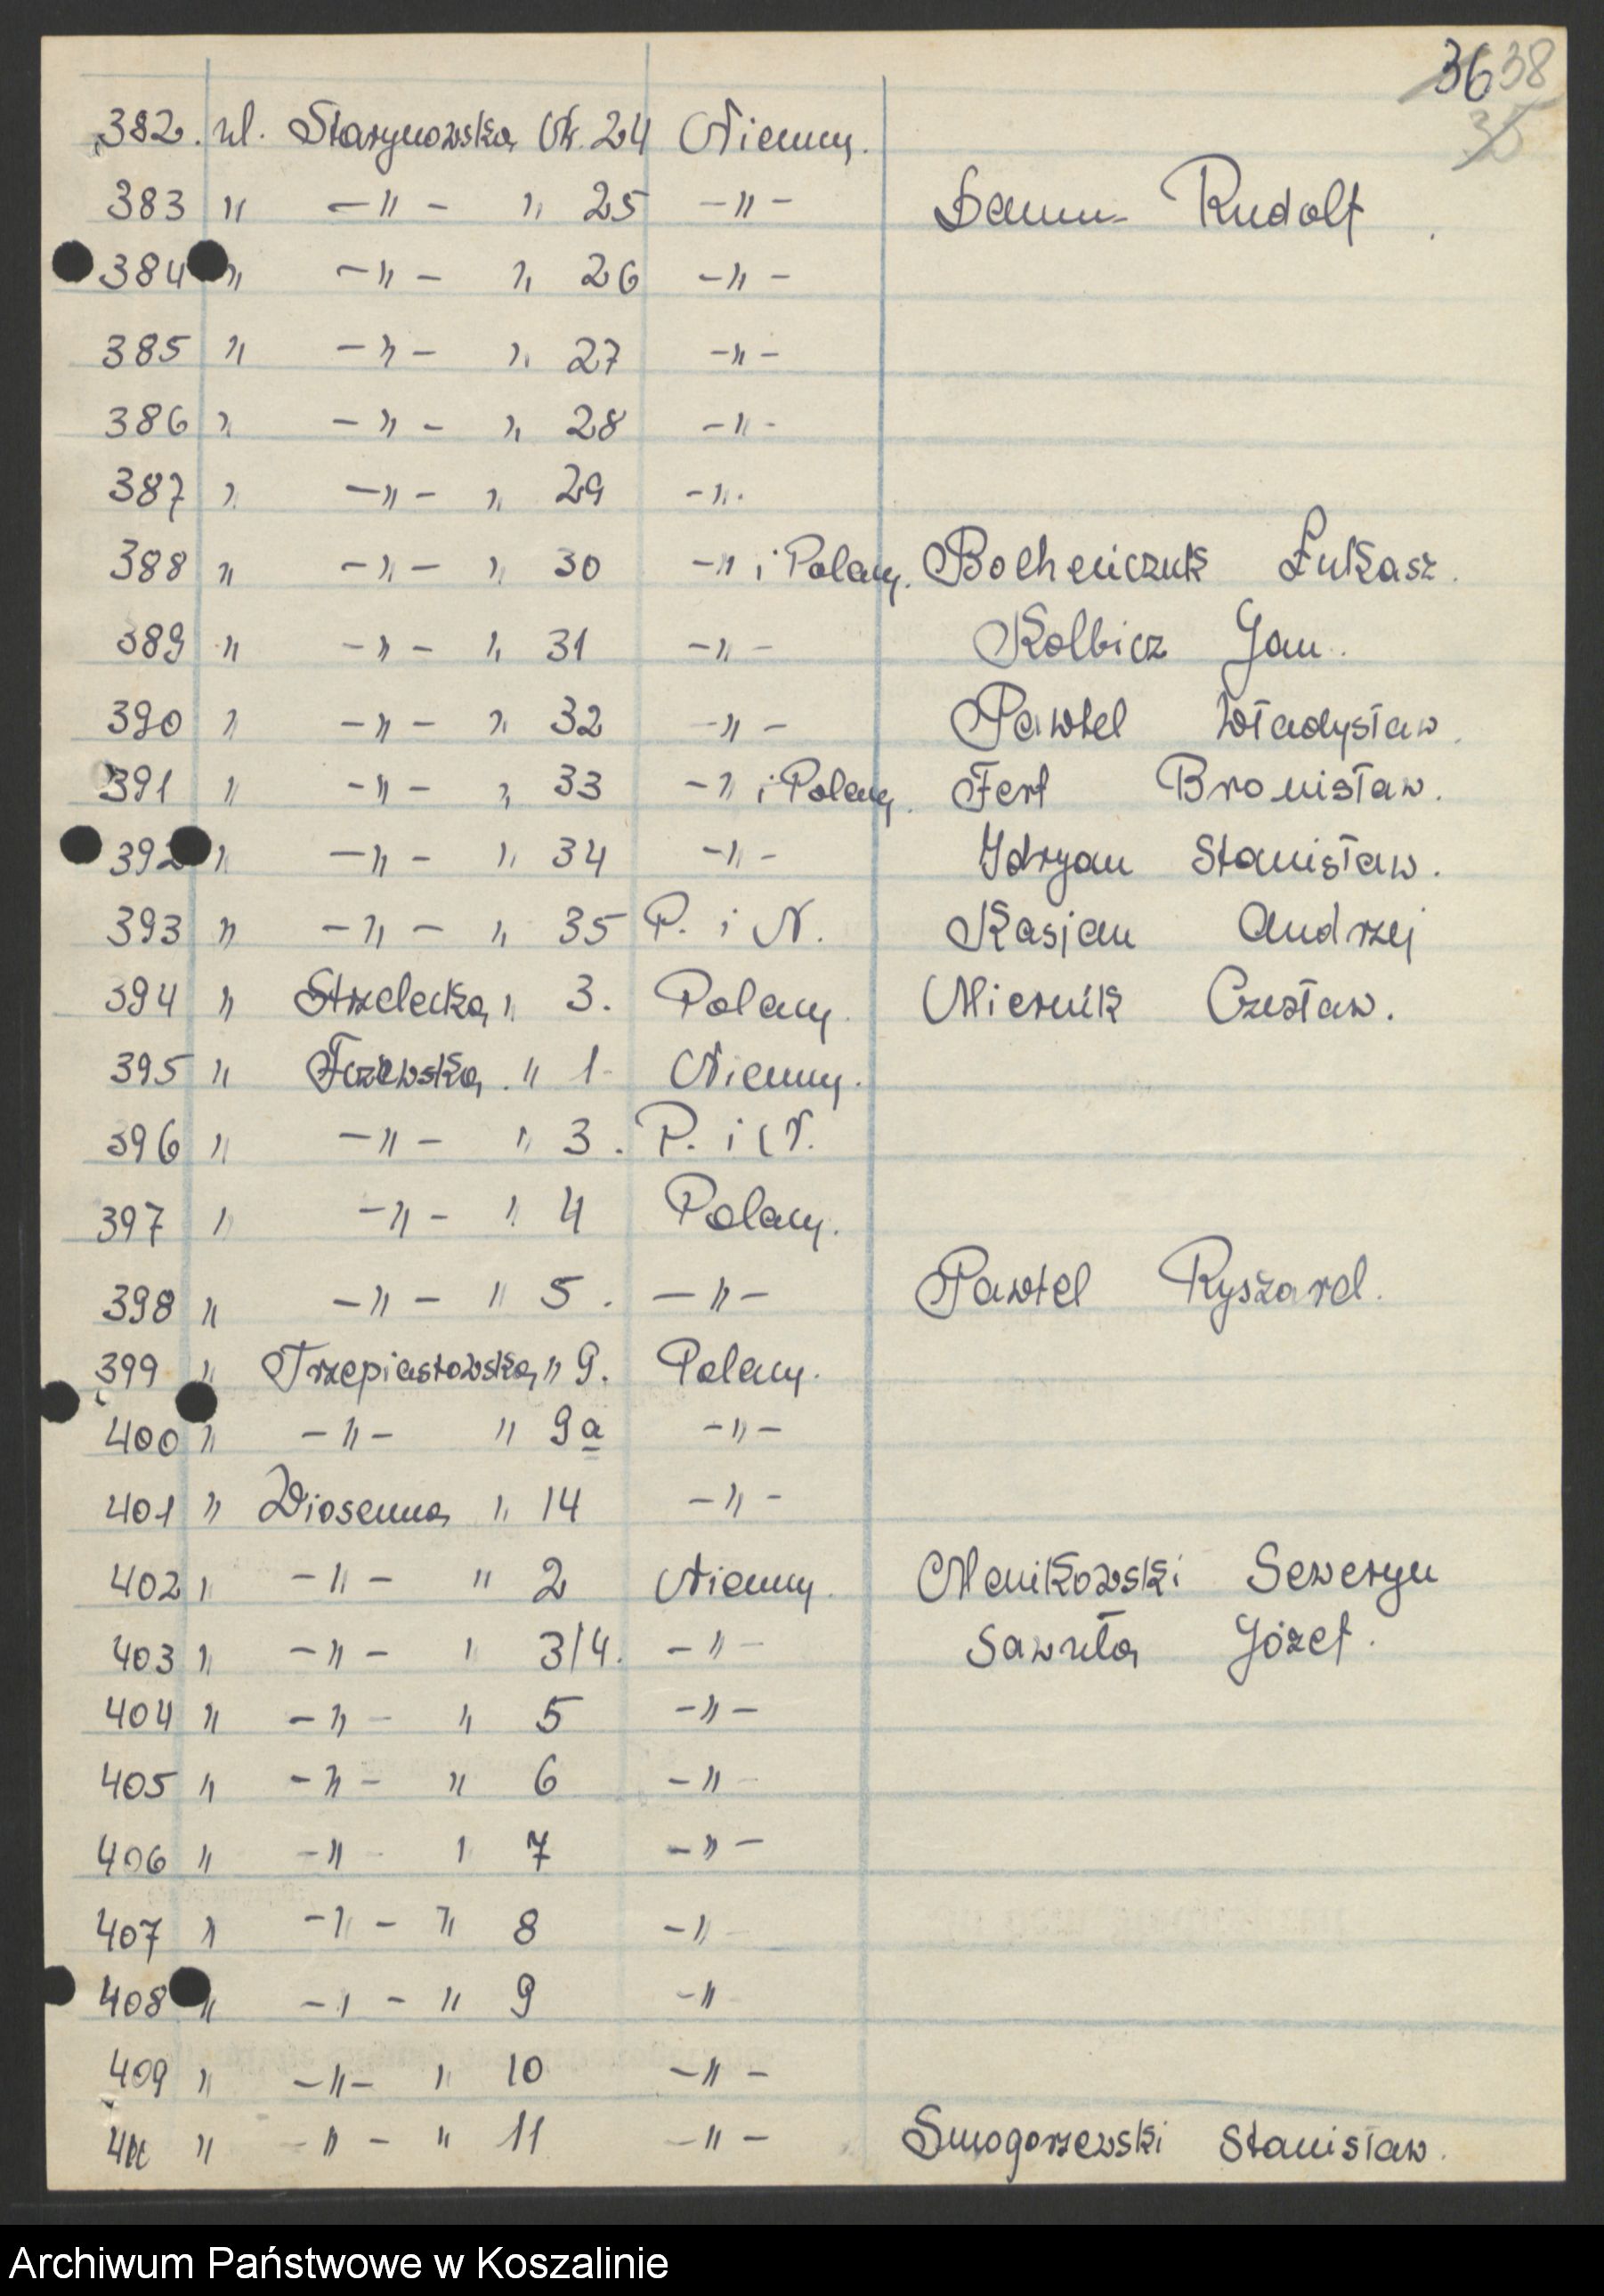 36 38
35
382. ul. Starynowska Nr. 24 Niemcy.
383 " -"- " 25 -"- Damm- Rudolf.
384 " -"- " 26 -"-
385 " -"- " 27 -"-
386 " -"- " 28 -"-
387 " -"- " 29 -".
388 " -"- " 30 -" i Polacy. Bocheńczuk Łukasz.
389 " -"- " 31 -"- Kolbicz Jan.
390 " -"- " 32 -"- Pawłel Władysław.
391 " -"- " 33 -" i Polacy. Fert Bronisław.
392 " -"- " 34 -"- Idryan Stanisław.
393 " -"- " 35 P. i N. Kasjan Andrzej
394 " Strzelecka " 3. Polacy. Miernik Czesław.
395 " Tczewska. " 1. Niemcy.
396 " -"- " 3. P. i N.
397 " -"- " 4 Polacy.
398 " -"- " 5. -"- Pawłel Ryszard.
399 " Trzepiastowska " 9. Polacy.
400 " -"- " 9a -"-
401 " Wiosenna " 14 -"-
402 " -"- " 2 Niemcy. Manikowski Seweryn
403 " -"- " 3/4. -"- Sawuła Józef.
404 " -"- " 5 -"-
405 " -"- " 6 -"-
406 " -"- " 7 -"-
407 " -"- " 8 -"-
408 " -"- " 9 -"
409 " -"- " 10 -"-
" -"- " 11 -"- Smogorzewski Stanisław.
Archiwum Państwowe w Koszalinie